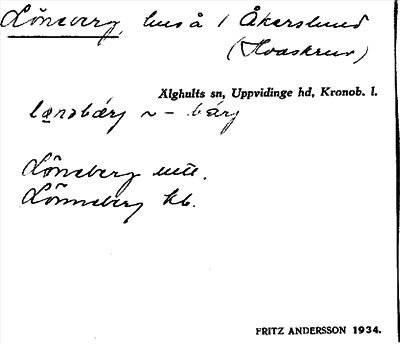 Löneberg, hus å 1 Åkerslund
(Hvaskruv)
Älghults sn, Uppvidinge hd, Kronob. l.
lønəbærj ~ – bárj
Löneberg utt.
Lönneberg kb.
FRITZ ANDERSSON 1934.